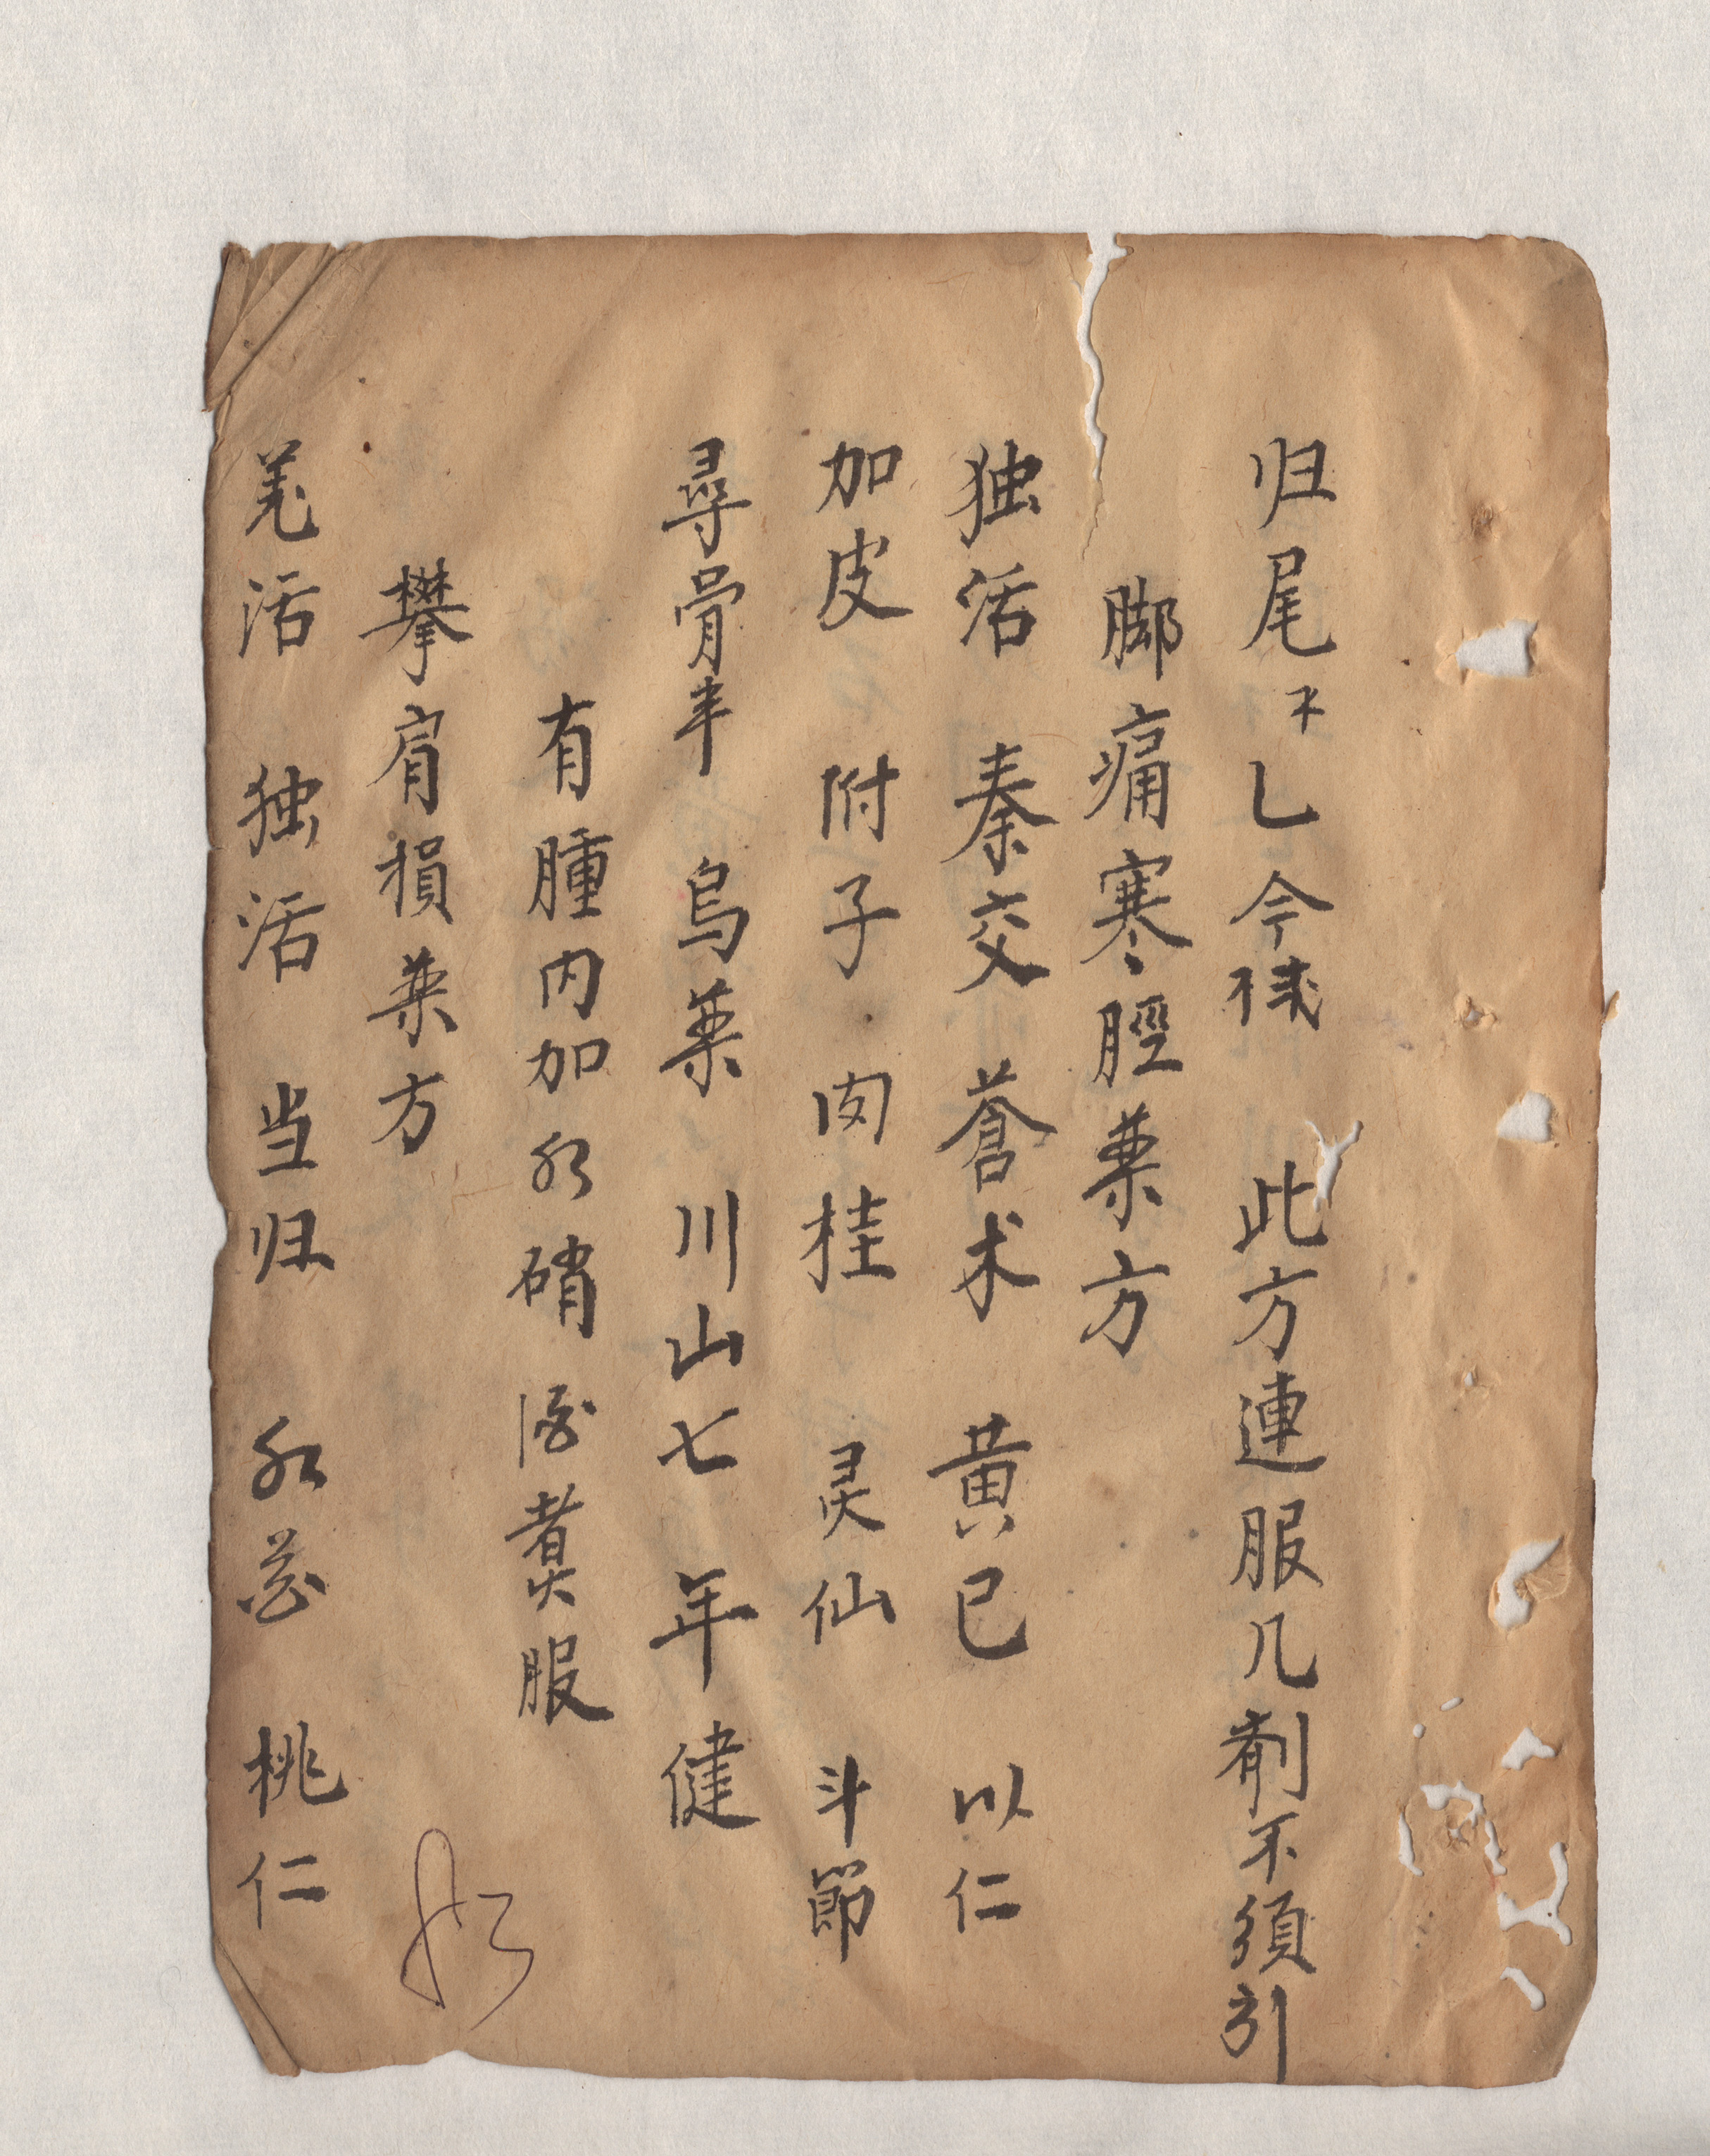 归尾不乚今栈 此方連服几剤不須引
脚痛寒脛薬方
独活 秦交 蒼术 黄已 以仁
加皮 附子 肉桂 灵仙 斗節
尋骨丰 烏薬 川山七 年健
有腫内加水硝 酒煑服
攀肩損薬方
羌活 独活 当归 紅花 桃仁